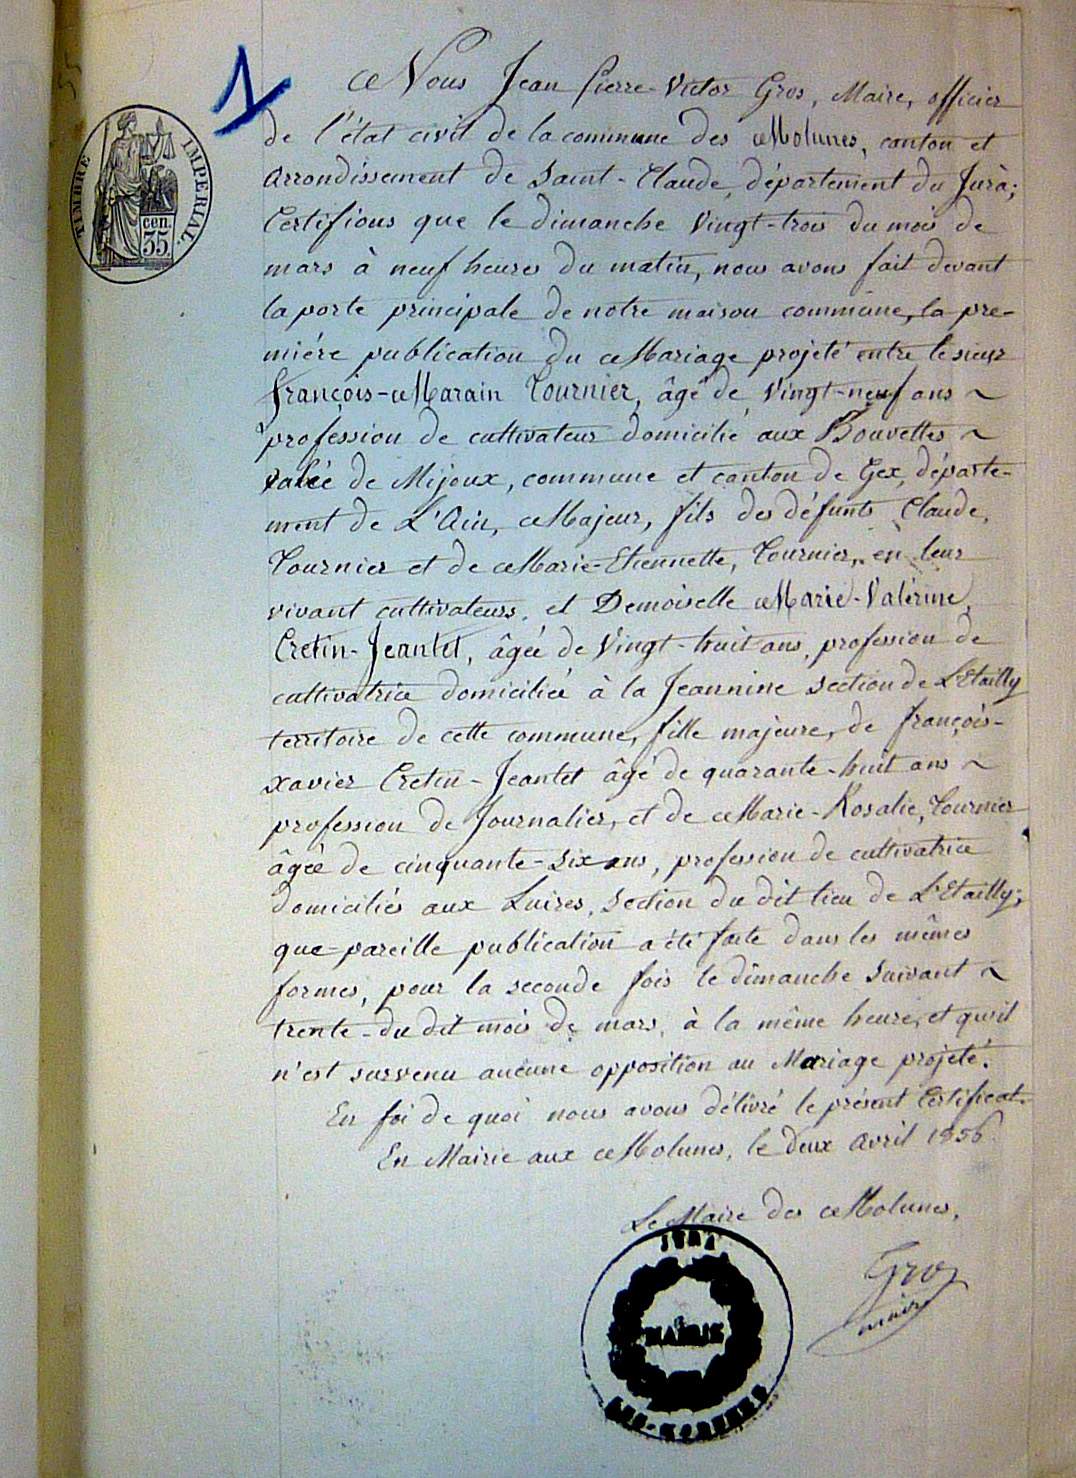 1
TIMBRE IMPERIAL.
cen.
35.
Nous Jean Pierre-Victor Gros, Maire, officier
de l'état civil de la commune des Molunes, canton et
arrondissement de Saint-Claude, département du Jura;
Certifions que le dimanche Vingt-trois du mois de
mars à neuf heures du matin, nous avons fait devant
la porte principale de notre maison commune, la pre-
miére publication du Mariage projeté entre le sieur
françois-Marain Tournier, âgé de Vingt-neuf ans ~
profession de cultivateur domicilié aux Bouvettes ~
valée de Mijoux, commune et canton de Gex, départe-
ment de L'Ain, Majeur, fils des défunts Claude,
Tournier et de Marie-Etiennette, Tournier, en leur
vivant cultivateurs, et Demoiselle Marie-Valérine,
Cretin-Jeantet, âgée de Vingt-huit ans, profession de
cultivatrice domiciliée à la Jeannine section de L'Etailly
territoire de cette commune, fille majeure, de françois-
xavier Cretin-Jeantet âgé de quarante-huit ans ~
profession de Journalier, et de Marie-Rosalie, Tournier
âgée de cinquante-six ans, profession de cultivatrice
domiciliés aux Luires, Section du dit lieu de L'Etailly;
que pareille publication a été faite dans les mêmes
formes, pour la seconde fois le dimanche suivant ~
trente du dit mois de mars, à la même heure, et qu'il
n'est survenu aucune opposition au Mariage projeté.
En foi de quoi nous avons délivré le présent Certificat.
En Mairie aux Molunes, le deux avril 1856.
Le Maire des Molunes,
Gros
maire
JURA
MAIRIE
LES-MOLUNES